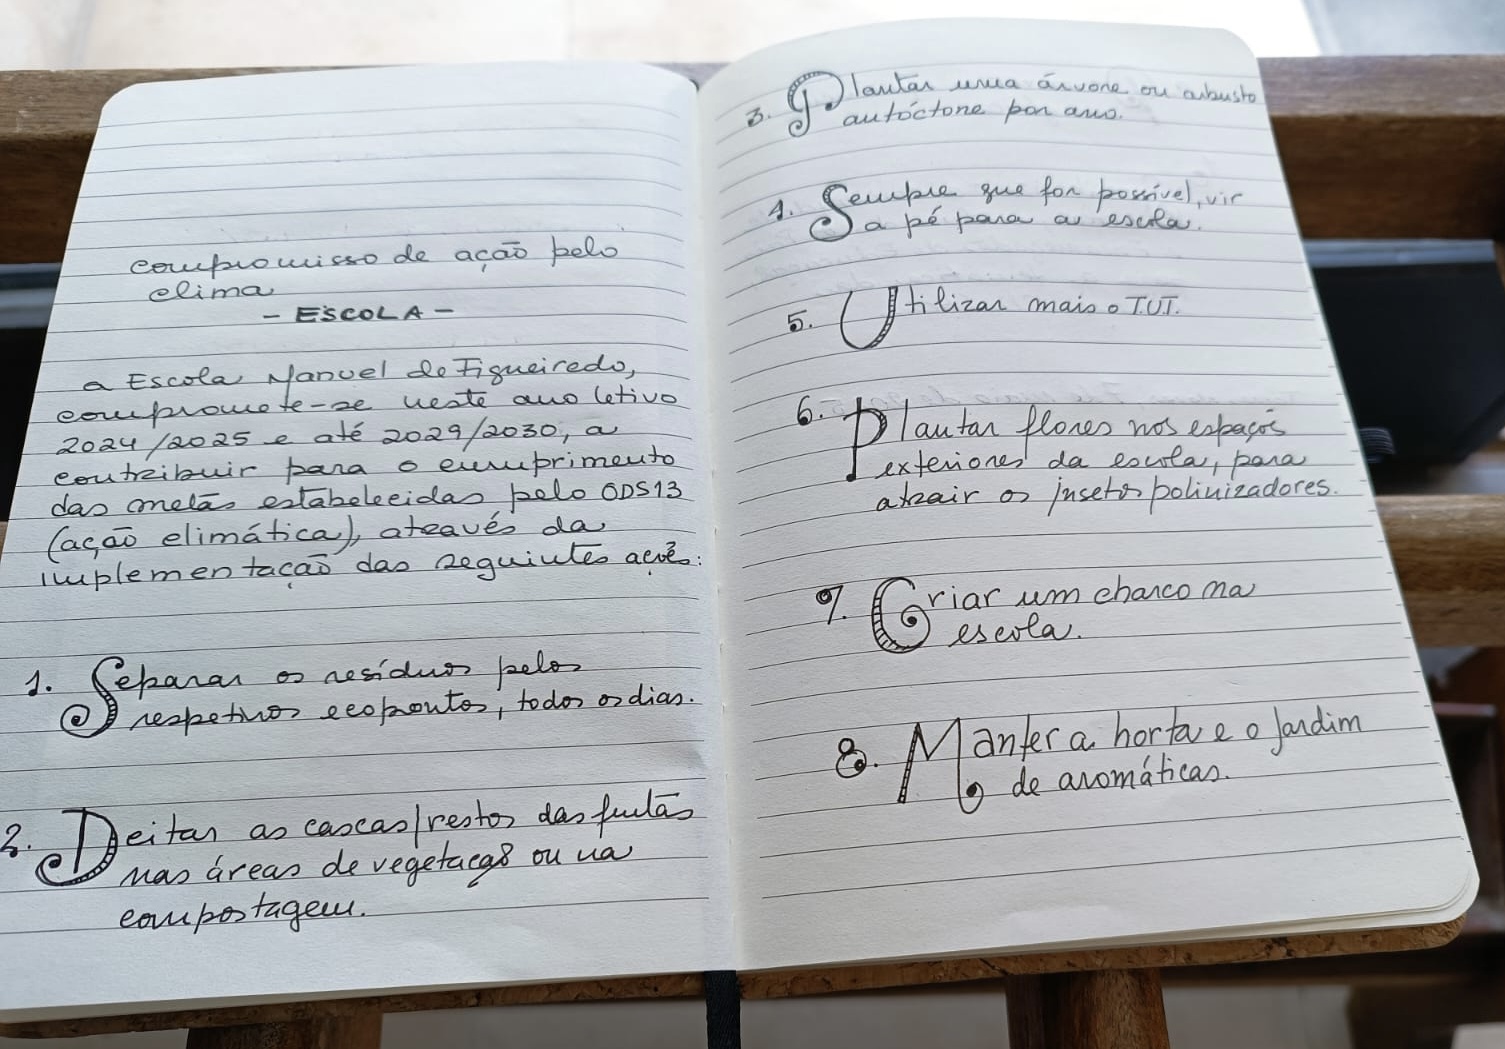 compromisso de ação pelo
clima
- ESCOLA -
a Escola Manuel de Figueiredo,
compromete-se neste ano letivo
2024/2025 e até 2029/2030, a
contribuir para o cumprimento
das metas estabelecidas pelo ODS13
(ação climática), através da
implementação das seguintes ações:
1. Separar os resíduos pelos
respetivos ecopontos, todos os dias.
2. Deitar as cascas/restos das frutas
nas áreas de vegetação ou na
compostagem.
3. Plantar uma árvore ou arbusto
autóctone por ano.
4. Sempre que for possível, vir
a pé para a escola.
5. Utilizar mais o T.U.T.
6. Plantar flores nos espaços
exteriores da escola, para
atrair os insetos polinizadores.
7. Criar um charco na
escola.
8. Manter a horta e o jardim
de aromáticas.